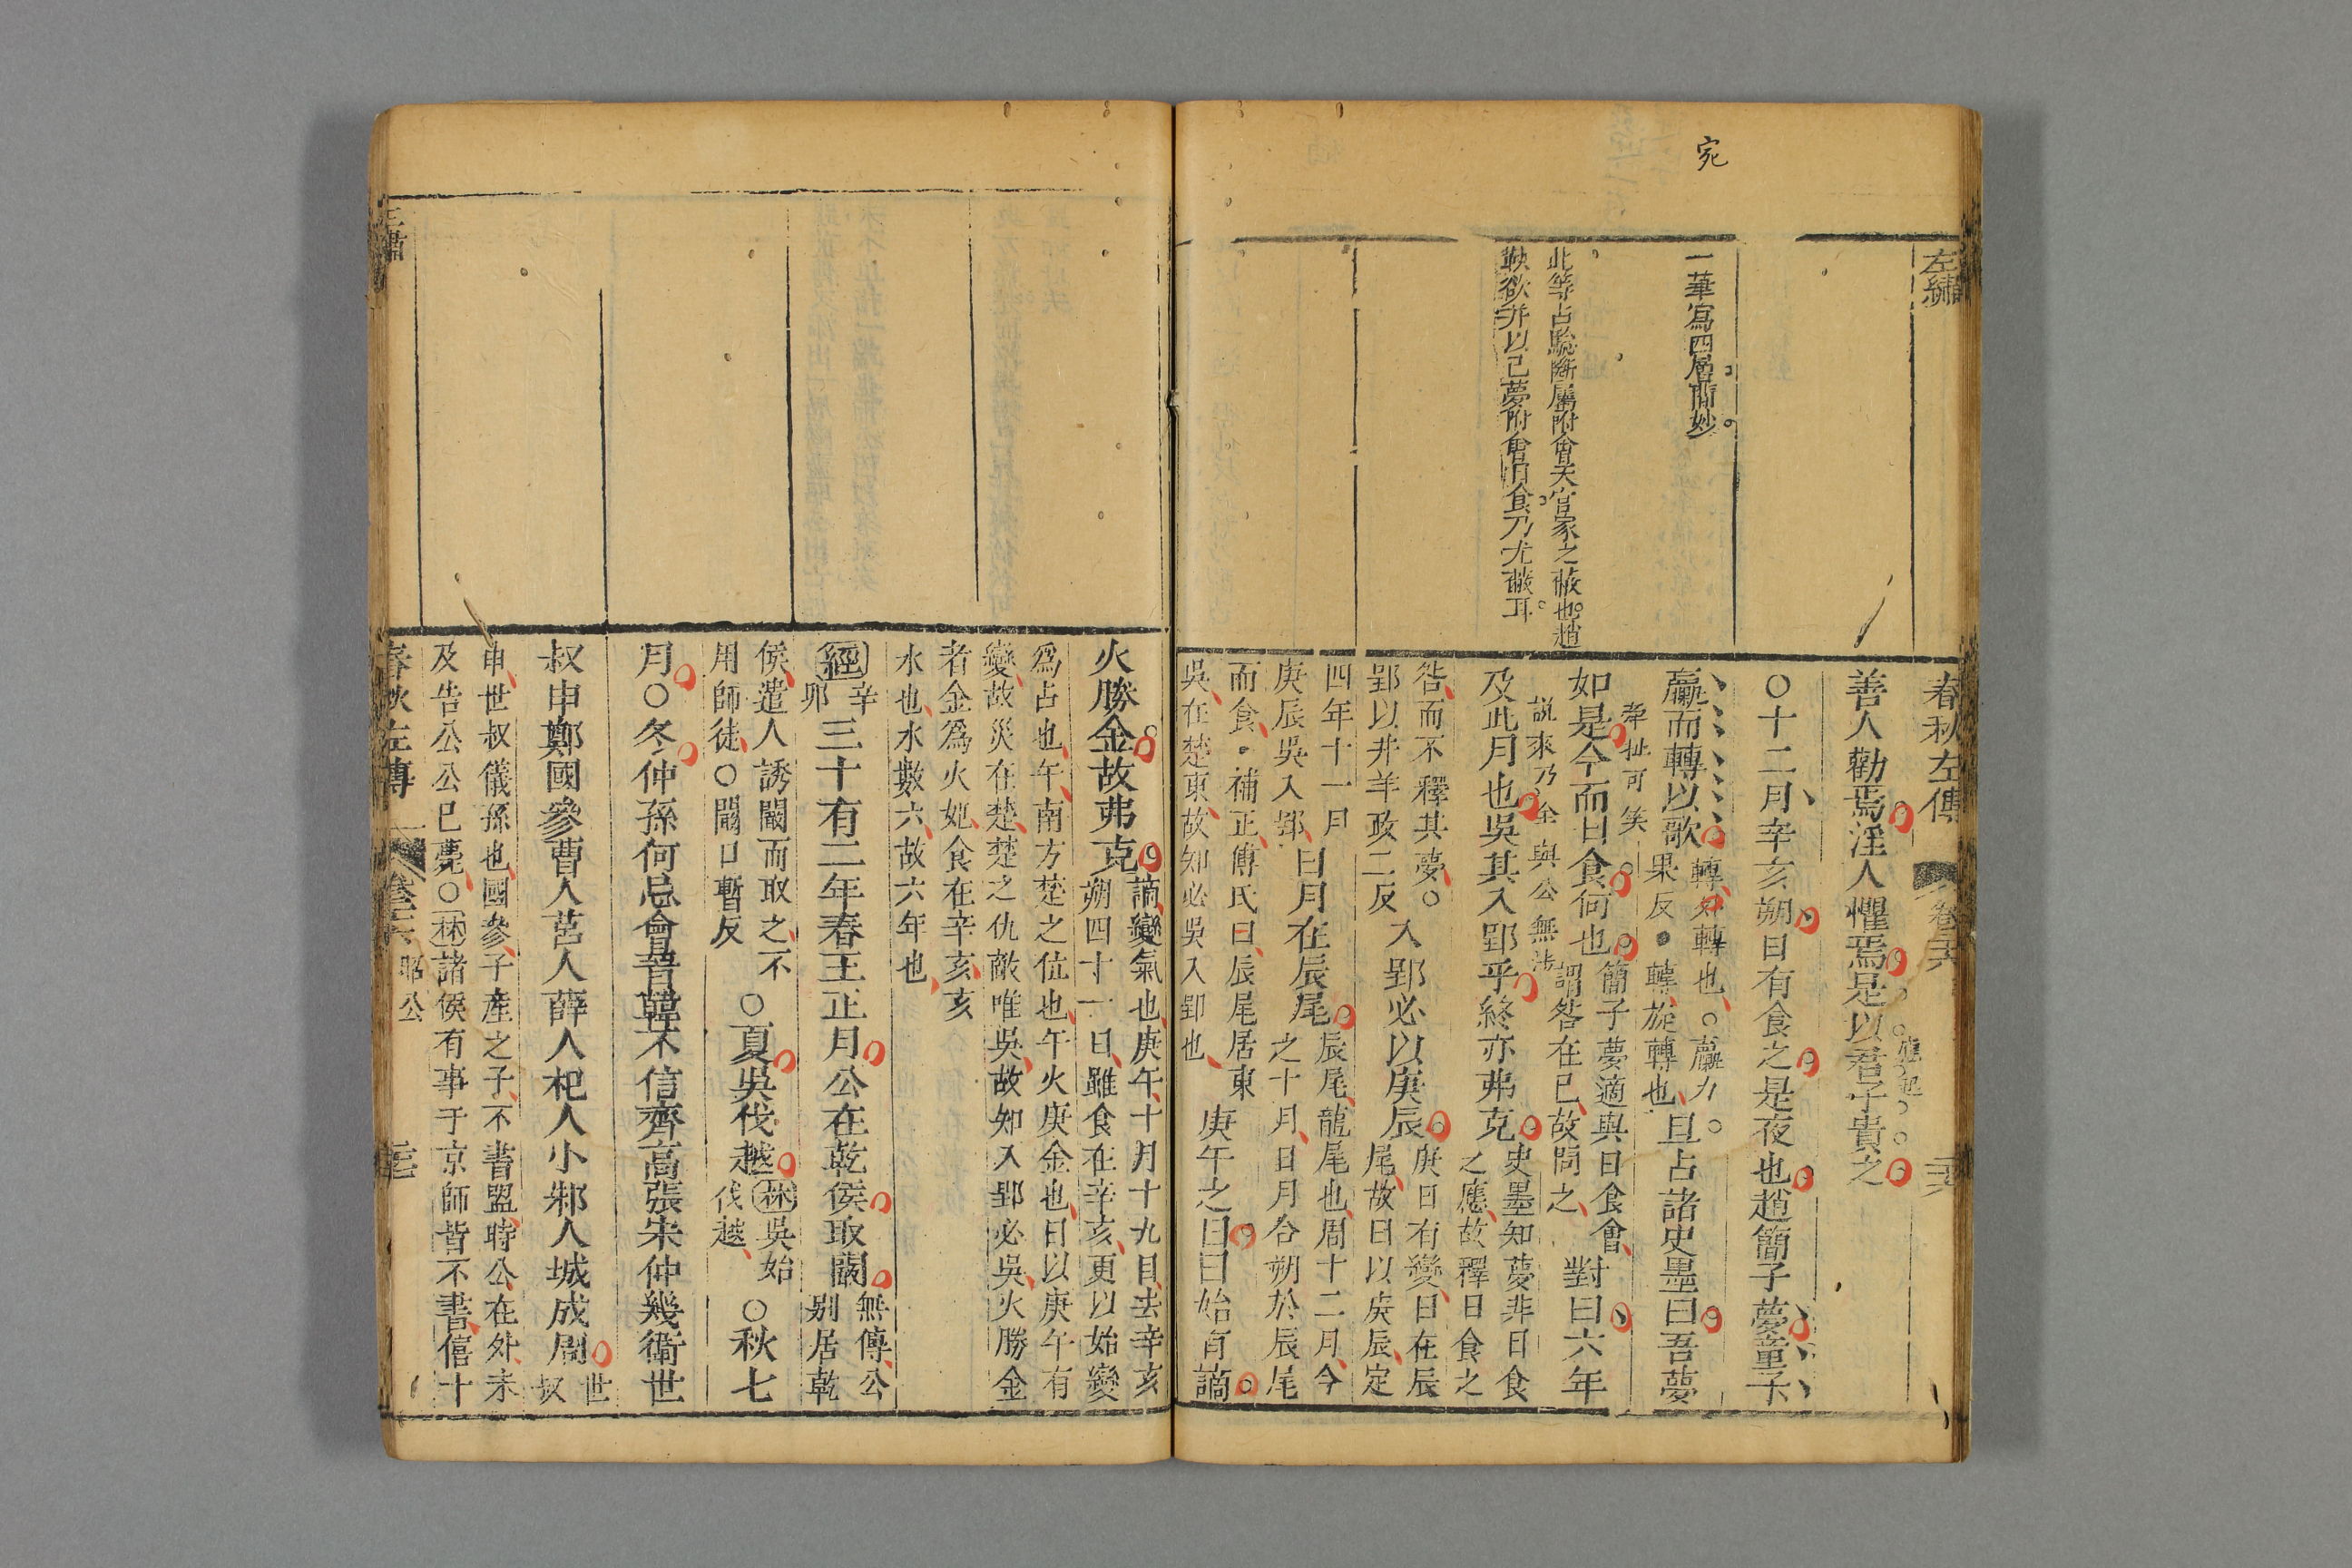 宛
左繡
一筆寫四層簡妙
此等占驗斷屬附會天官家之蔽也趙
鞅欲并以己夢附會日食乃尤蔽耳
春秋左傳
卷二十六
善人勸焉淫人懼焉是以君子貴之
應起
○十二月辛亥朔日有食之是夜也趙簡子夢童子
臝而轉以歌
轉宛轉也○臝力
果反●轉旋轉也
旦占諸史墨曰吾夢
牽扯可笑
如是今而日食何也
簡子夢適與日食會
謂咎在己故問之
對曰六年
說來乃全與公無涉
及此月也吳其入郢乎終亦弗克
史墨知夢非日食
之應故釋日食之
咎而不釋其夢○
郢以井羊政二反
入郢必以庚辰
庚日有變日在辰
尾故曰以庚辰定
四年十一月
庚辰吳入郢
日月在辰尾
辰尾龍尾也周十二月今
之十月日月合朔於辰尾
而食●補正傅氏曰辰尾居東
吳在楚東故知必吳入郢也
庚午之日日始有謫
火勝金故弗克
謫變氣也庚午十月十九日去辛亥
朔四十一日雖食在辛亥更以始變
為占也午南方楚之位也午火庚金也日以庚午有
變故災在楚楚之仇敵唯吳故知入郢必吳火勝金
者金為火妃食在辛亥亥
水也水數六故六年也
經
辛
卯
三十有二年春王正月公在乾侯取闞
無傳公
別居乾
侯遣人誘闞而取之不
用師徒○闞口暫反
○夏吳伐越
林吳始
伐越
○秋七
月○冬仲孫何忌會晉韓不信齊高張宋仲幾衛世
叔申鄭國參曹人莒人薛人杞人小邾人城成周
世
叔
申世叔儀孫也國參子產之子不書盟時公在外未
及告公公已薨○林諸侯有事于京師皆不書僖十
春秋左傳
昭公